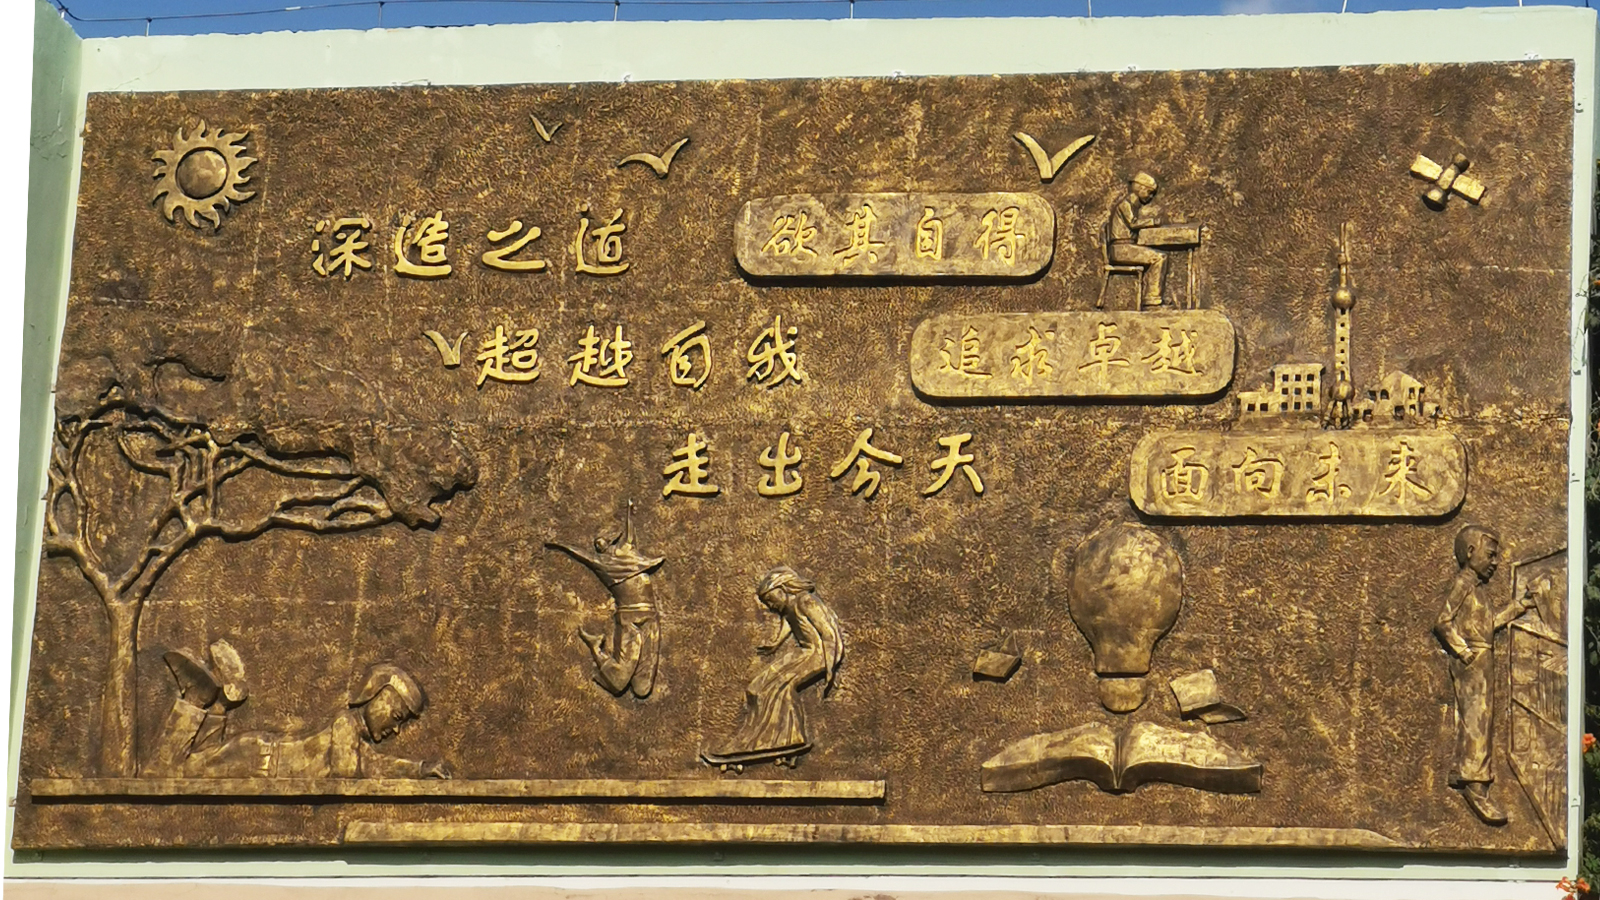 深造之道 欲其自得
超越自我 追求卓越
走出今天 面向未来